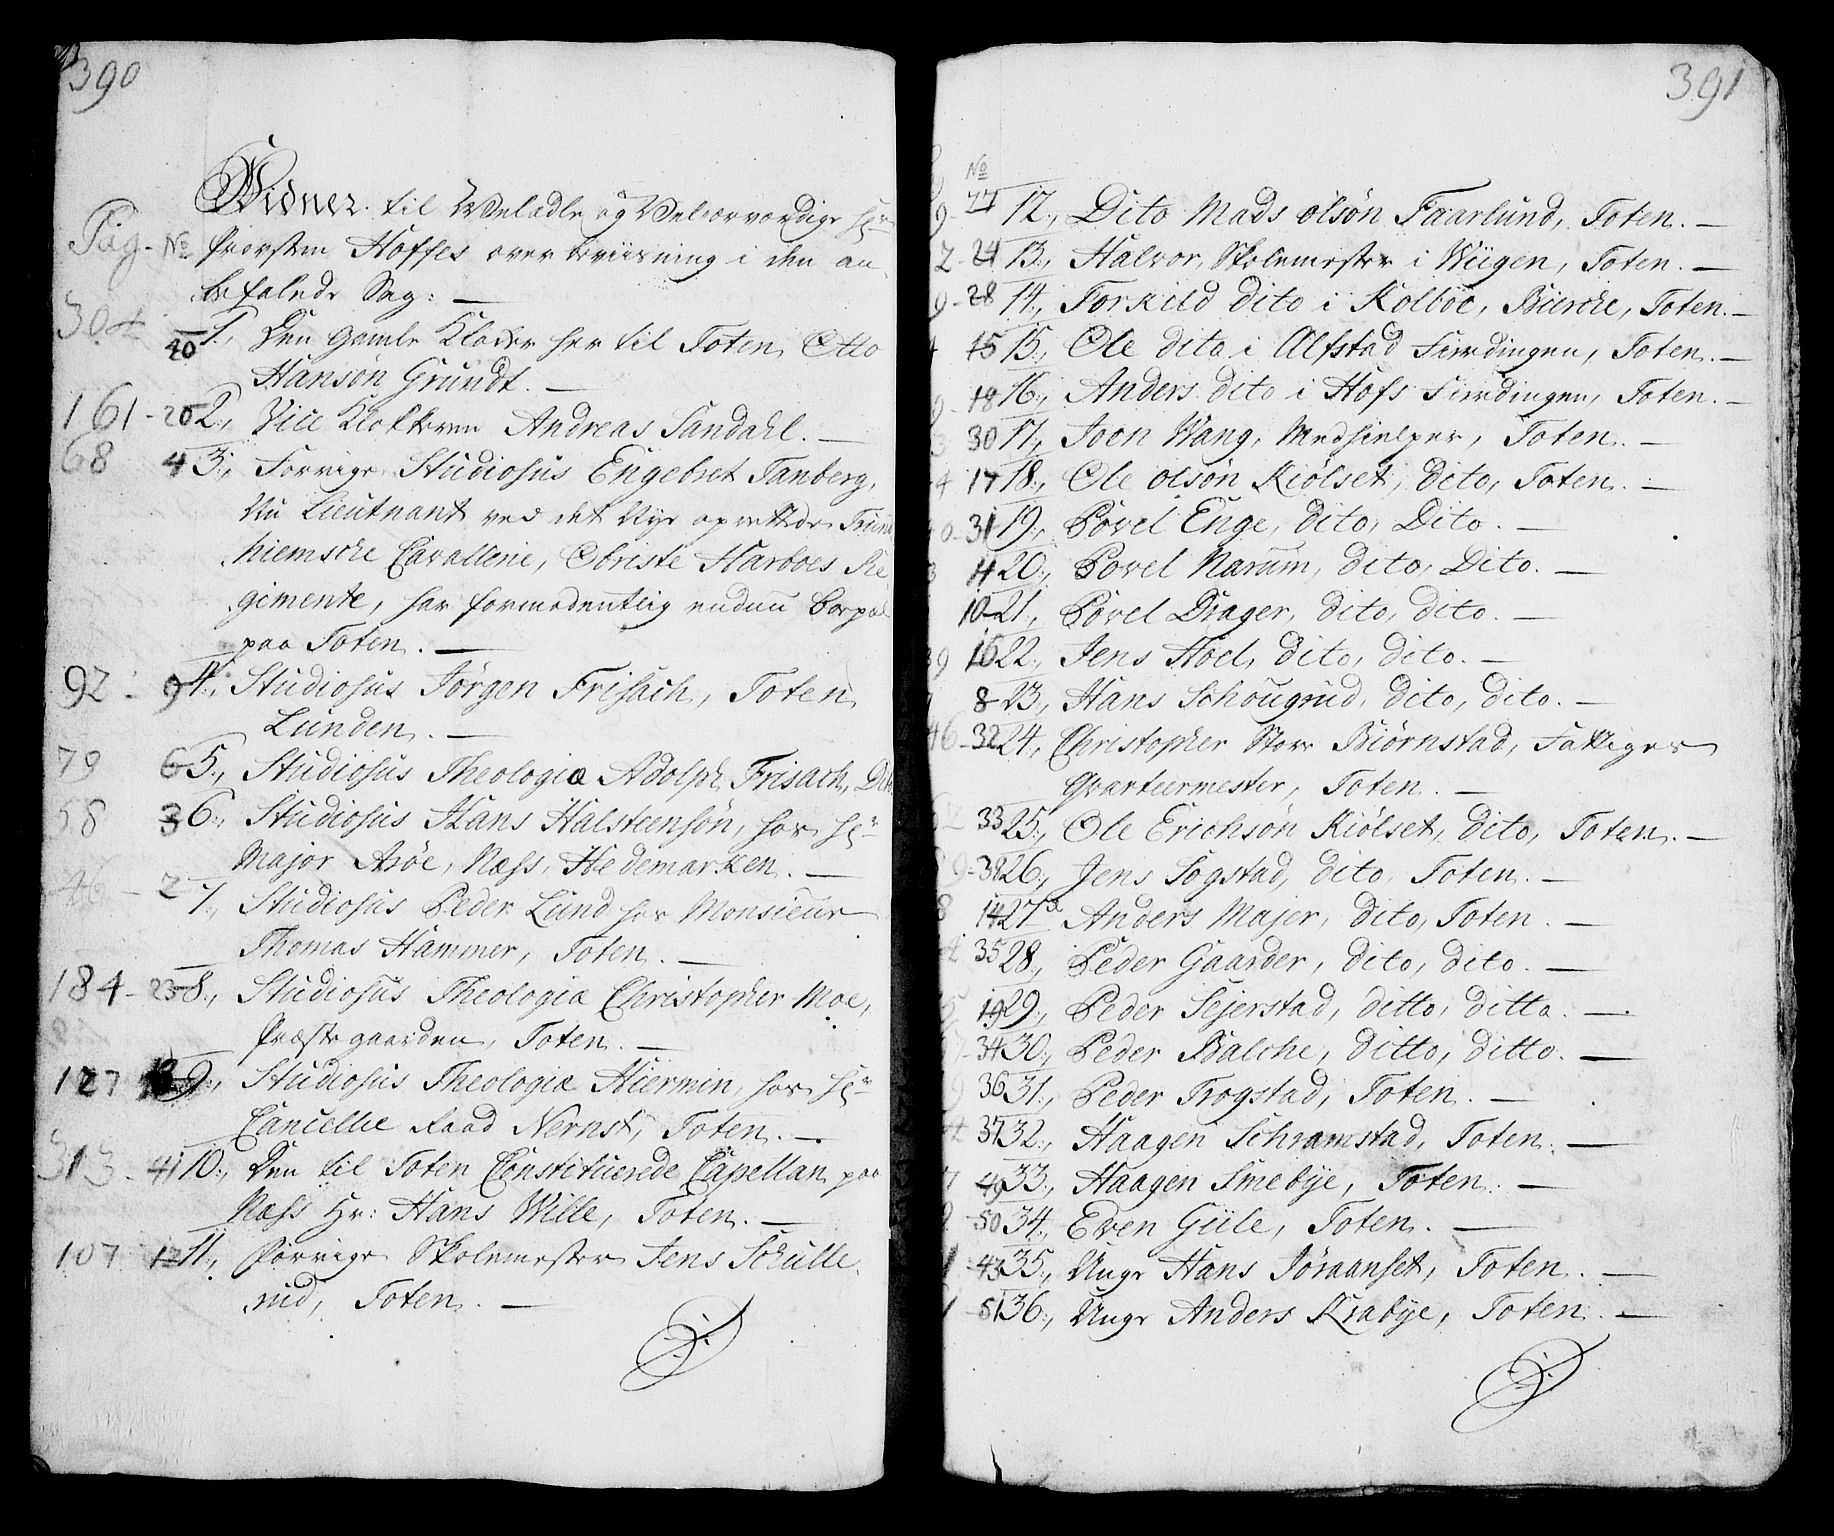 390
Vidner til Velædle og Velærværdige Hr
Pag. No Provsten Hoffes overbeviisning i den an
befalede Sag: —
304 40 1., Den Gamle Klocker her til Toten, Otto
Hansøn Grundt. —
161 - 20 2., Vice Klokkeren Andreas Sandahl. —
68 4 3., Forrige Studiosus Engebret Tanberg,
Nu Lieutnant ved det Nye oprettede Trund
hiemske Cavallerie, Obriste Harboes Re
gimente, har formodentlig endnu
paa Toten. —
92 - 9 4., Studiosus Jørgen Frisach, Toten
Lunden. —
79 6 5., Studiosus Theologiæ Adolph Frisach, Dito
58 3 6., Studiosus Hans Halsteensøn, hos Hr
Major Arøe, Næss, Hedemarken. —
46 - 2 7., Studiosus Peder Lund hos Monsieur
Thomas Hammer, Toten. —
184 - 23 8., Studiosus Theologiæ Christopher Moe,
Præste gaarden, Toten. —
127 13 9., Studiosus Theologiæ Hiermin, hos Hr
Cancellie Raad Nernst, Toten. —
313 - 41 10., Den til Toten Constituerede Capellan paa
Næss Hr: Hans Wille, Toten. —
107 12 11., Forrige Skolemester Jens Schülle
rud, Toten. —
391
No
12., Dito Mads Olsøn Faarlund, Toten. —
24 13., Halvor, Skolemester i Wiigen, Toten. —
28 14., Torkild dito i Kolboe, Biirche, Toten. —
15 15., Ole dito i Alfstad Fierdingen, Toten. —
18 16., Anders dito i Hofs Fierdingen, Toten. —
30 17., Joen Wang, Medhielper, Toten. —
17 18., Ole Olsøn Kiølset, dito, Toten. —
31 19., Povel Enge, dito, Dito. —
11 20., Povel Narum, dito, Dito. —
10 21., Povel Drager, dito, dito. —
16 22., Jens Hoel, dito, dito. —
8 23., Hans Schougrud, dito, dito. —
32 24., Christopher Store Biørnstad, Fattiges
Qvarteermester, Toten. —
33 25., Ole Erichsøn Kiølset, dito, Toten. —
38 26., Jens Sogstad, dito, Toten. —
14 27., Anders Majer, dito, Toten. —
35 28., Peder Gaarder, dito, dito. —
19 29., Peder Sejerstad, ditto, ditto. —
34 30., Peder Balche, ditto, ditto. —
36 31., Peder Trogstad, Toten. —
37 32., Haagen Schramstad, Toten. —
49 33., Haagen Smebye, Toten. —
50 34., Even Giile, Toten. —
43 35., Unge Hans Jøraanset, Toten. —
51 36., Unge Anders Krabye, Toten. —